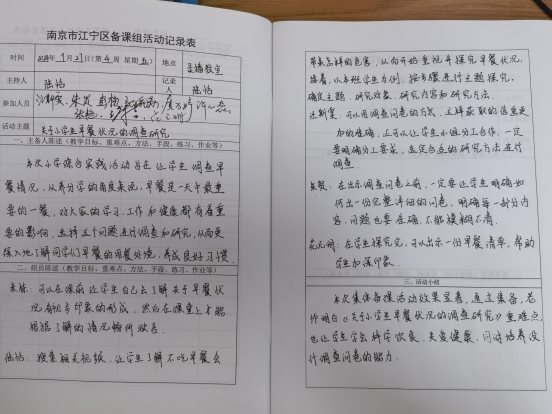 南京市江宁区备课组活动记录表
时间 2024年9月27日(第4周 星期五) 地点 录播教室
主持人 陆恬 记录人 陆恬
参加人员
活动主题 关于小学生早餐状况的调查研究
一、主备人陈述(教学目标、重难点、方法、手段、练习、作业等)
本次小学综合实践活动旨在让学生调查早
餐情况,从养分学的角度来说,早餐是一天中最重
要的一餐,对大家的学习、工作和健康都有着重
要的影响,选择这个问题进行调查和研究,从而更
深入地了解同学们早餐的用餐处境,养成良好习惯
二、组员陈述(教学目标、重难点、方法、手段、练习、作业等)
可以在课前让学生自己去了解关于早餐状
况有初步印象的形成,然后在课堂上才能
根据了解的情况畅所欲言
陆恬:搜集相关视频,让学生了解不吃早餐会
带来怎样的危害,从而开始重视并探究早餐状况。
接着,以本班学生为例,按步骤进行主题探究,
确定主题、研究对象、研究内容和研究方法。
可以用调查问卷的方式,这样获取的信息更
加的准确,还可以让学生小组分工合作,一定
要明确分工要求,选定合适的研究方法进行
调查。
在出示调查问卷之前,一定要让学生明确如
何出一份完整详细的问卷,明确每一部分内
容,问题也要准确,不能模糊不清。
在学生探究完,可以出示一份早餐清单,帮助
学生加深印象。
三、活动小结
本次集体备课活动效果显著,通过集备,老
师明白《关于小学生早餐状况的调查研究》重难点,
也让学生学会科学饮食,关爱健康,同时培养设
计调查问卷的能力。